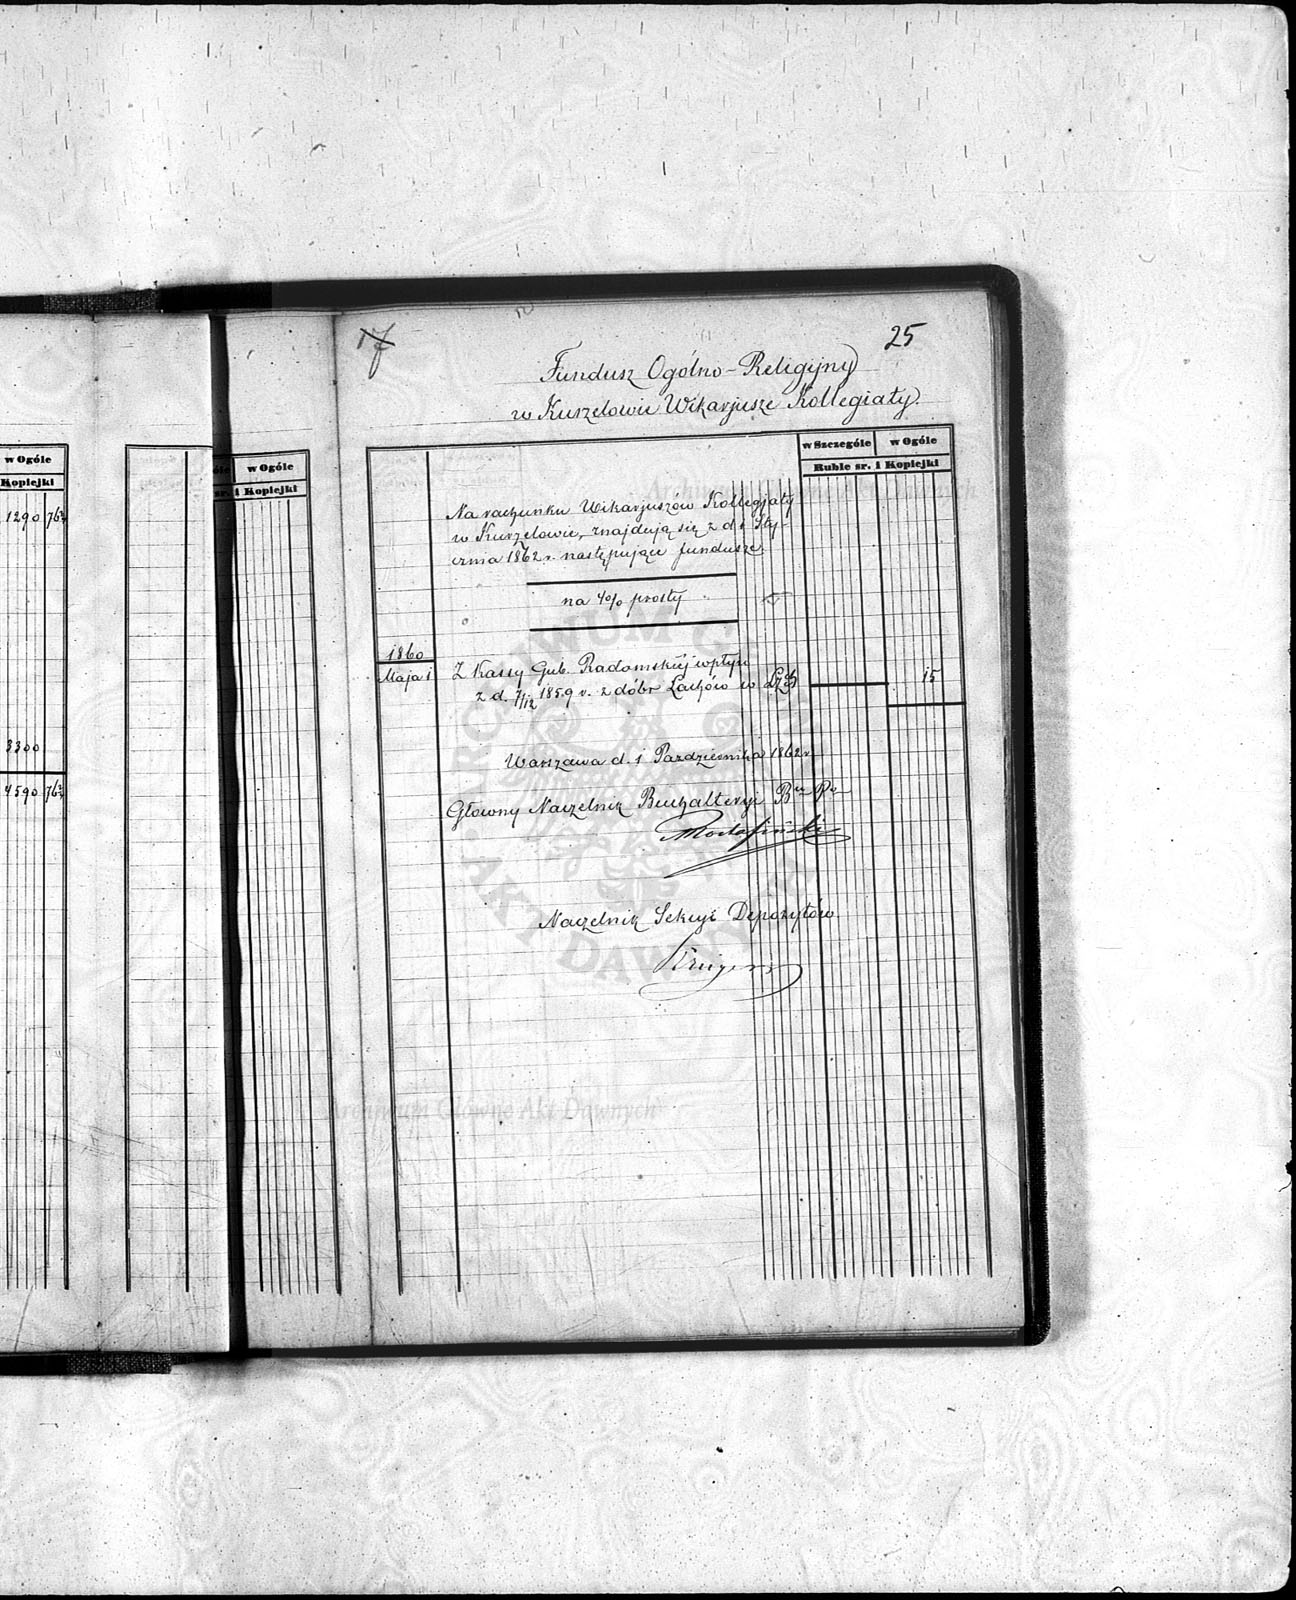 w Ogóle
Kopiejki
1290 76½
3300
4590 76½
w Ogóle
sr. i Kopiejki
17
25
Fundusz Ogólno-Religijny
w Kurzelowie Wikarjusze Kollegiaty.
w Szczególe w Ogóle
Ruble sr. i Kopiejki
Na rachunku Wikarjuszów Kollegjaty
w Kurzelowie, znajdują się z d. 1 Sty-
cznia 1862 r. następujące fundusze:
na 4% prosty
1860
Maja 1 Z Kassy Gub. Radomskiéj wpływ
z d. 7/12 1859 r. z dóbr Lachów w 15
Warszawa d. 1 Pazdziernika 1862 r.
Główny Naczelnik Buchalteryi
Naczelnik Sekcyi Depozytów
Archiwum Główne Akt Dawnych
ARCHIWUM GŁÓWNE AKT DAWNYCH
Archiwum Główne Akt Dawnych